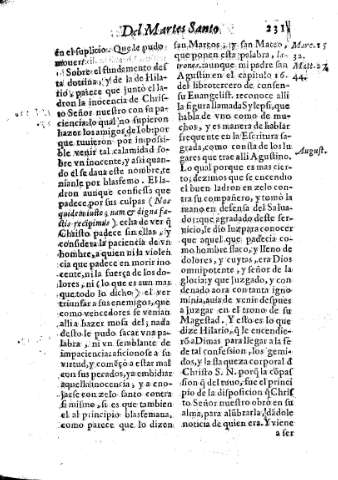 Del Martes Santo. 231
en el suplicio. Que le pudo
Sobre el fundamento desta
dotrina, y de la de Hilario,
parece que juntò el ladron
la inocencia de Christo
Señor nuestro con su paciencia:
lo qual no supieron
hazer los amigos de Iob: porque
tuuieron por imposible
venir tal calamidad sobre
vn inocente, y assi quando
el se daua este nombre, tenianle
por blasfemo. El ladron
aunque confiessa que
padece, por sus culpas (Nos
quidem iuste, nam & digna factis
recipimus) echa de ver q̃
Christo padece sin ellas, y
considera la paciencia de vn
hombre, a quien ni la violencia
que padece en morir inocente,
ni la fuerça de los dolores,
ni (lo que es aun mas
que todo lo dicho) el ver
triunfar a sus enemigos, que
como vencedores se venian
alli a hazer mofa del; nada
desto le pudo sacar vna palabra,
ni vn semblante de
impaciencia: aficionose a su
virtud, y comẽçò a estar mal
con sus pecados, ya embidiar
aquella inocencia; y a enojarse
con zelo santo contra
si mismo, si es que tambien
el al principio blasfemaua,
como parece que lo dizen
san Marcos, y san Mateo,
que ponen esta palabra,
aunque mi padre san
Agustin en el capitulo 16.
del libro tercero de consensu
Euangelist. reconoce alli
la figura llamada Sylepsi, que
habla de vno como de muchos,
y es manera de hablar
frequente en la Escritura sagrada,
como consta de los lugares
que trae alli Agustino.
Lo qual porque es mas cierto;
dezimos que se encendio
el buen ladron en zelo contra
su compañero, y tomò la
mano en defensa del Saluador:
que agradado deste seruicio,
le dio luz para conocer
que aquel que padecia como
hombre flaco, y lleno de
dolores, y cuytas, era Dios
omnipotente, y señor de la
gloria: y que juzgado, y condenado
aora con tanta ignominia,
auia de venir despues
a juzgar en el trono de su
Magestad. Y esto es lo que
dize Hilario, q̃ le encendieron
a Dimas para llegar a la fe
de tal confession, los gemidos,
y la flaqueza corporal d̃
Christo S. N. porq̃ la cõpasion
q̃ del tuuo, fue el principio
de la disposicion q̃ Christo
Señor nuestro obrò en su
alma, para alũbrarla, dãdole
noticia de quien era. Y viene
a ser
Marc. 15
32.
Matt. 27
44.
August.